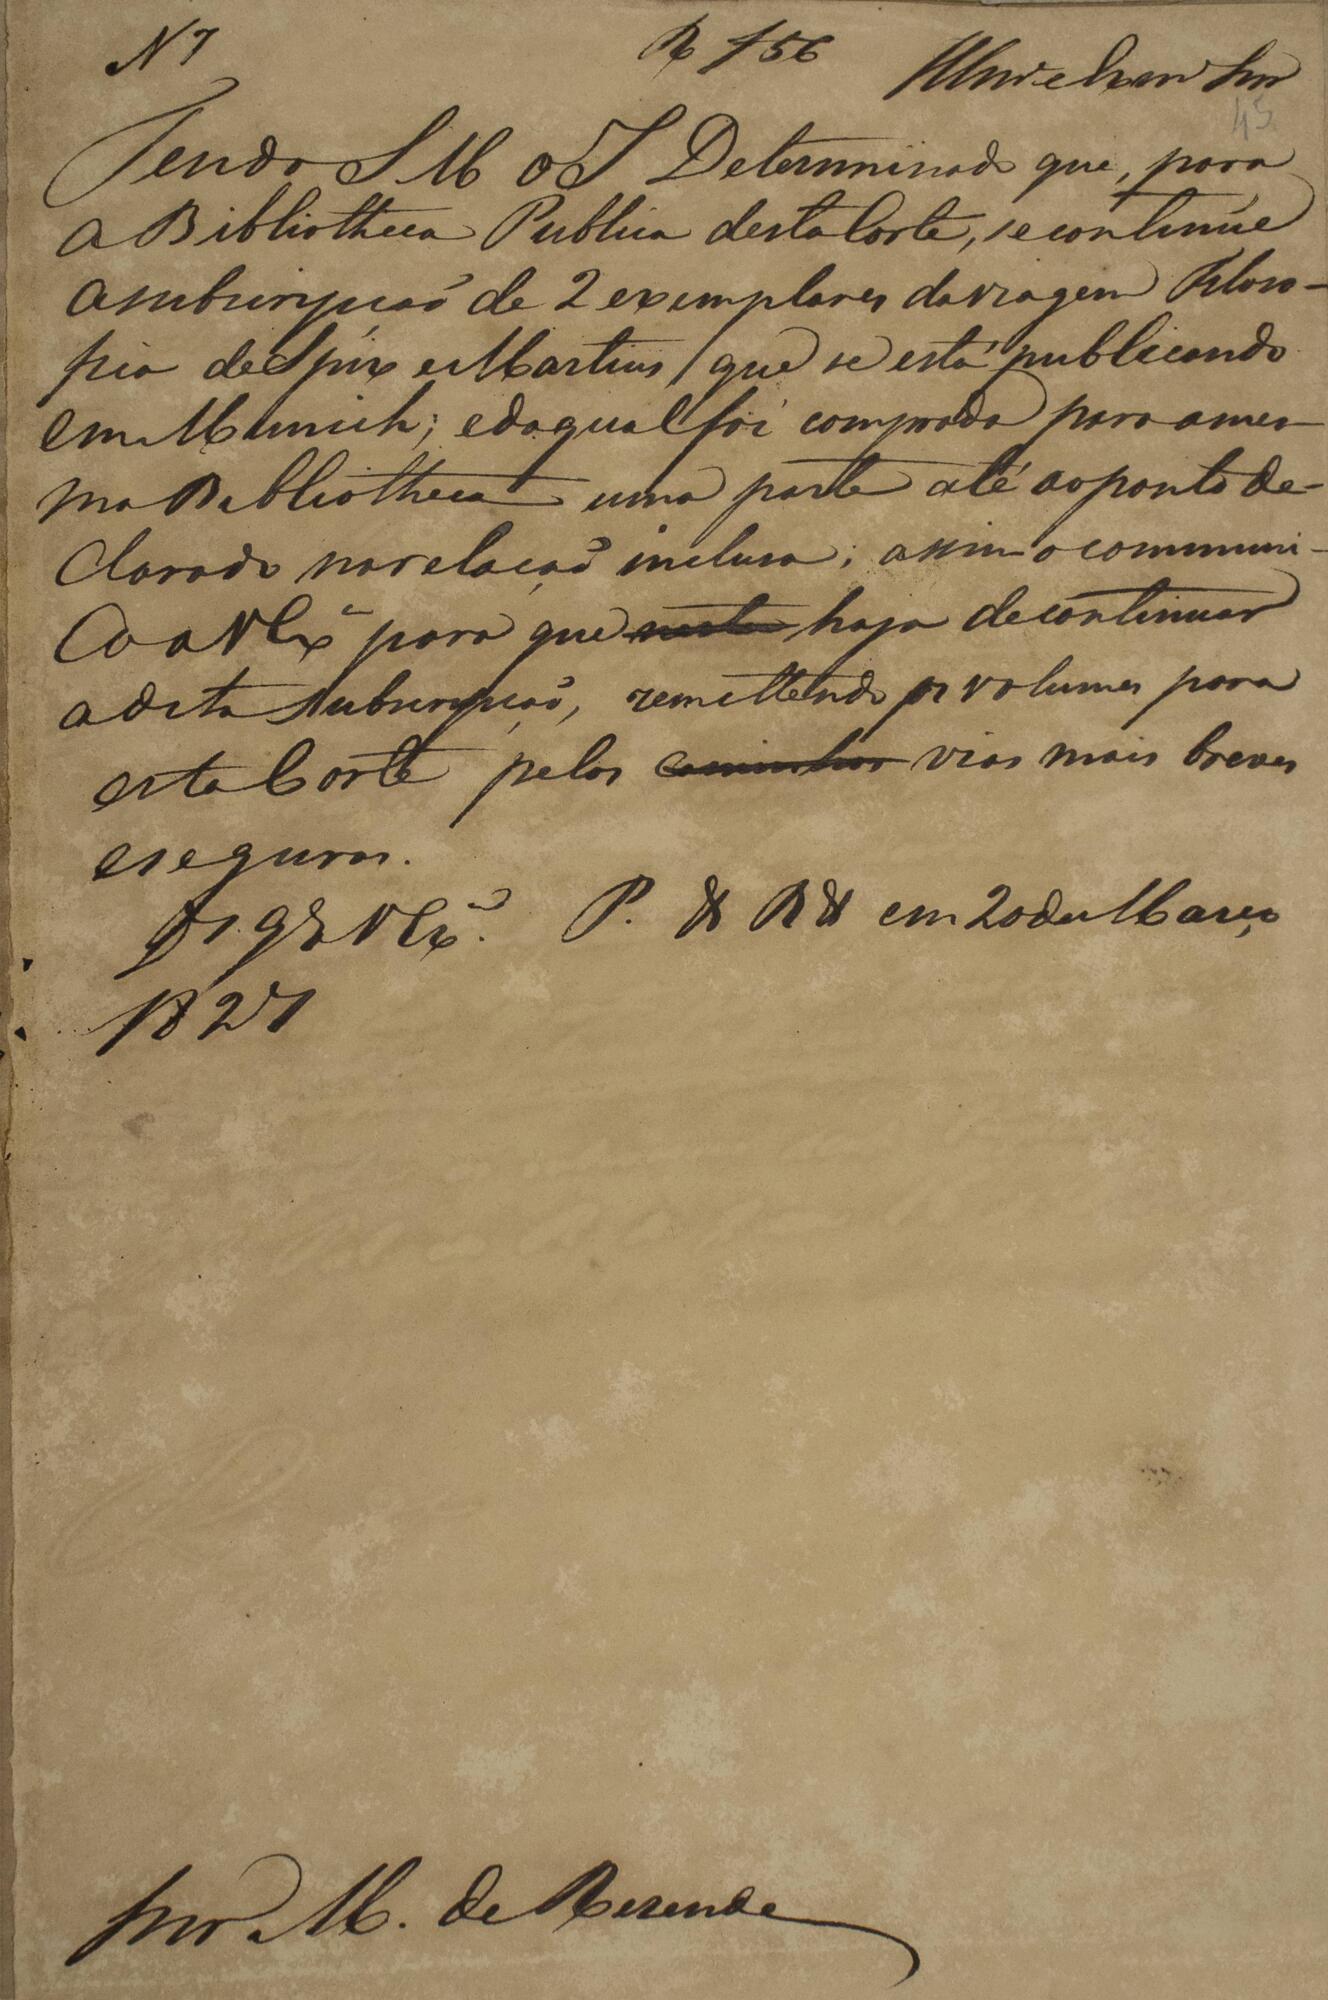 N 7 R f 56 Illmo e Exmo Snr
45
Tendo S M o I Determinado que, para
a Bibliotheca Publica desta Corte, se continúe
a subscripção de 2 exemplares da viagem Filoso-
fica de Spix e Martius / que se está publicando
em Munich; e da qual foi comprada para a mes-
ma Bibliotheca uma parte até ao ponto de-
clarado na relação inclusa; assim o communi-
co a V Exª para que nesta haja de continuar
a dita subscripção, remettendo os volumes para
esta Corte pelos caminhos vias mais breves
e seguras.
Ds. gde V Exª. P. do R do em 20 de Março
1827
Snr M. de Resende